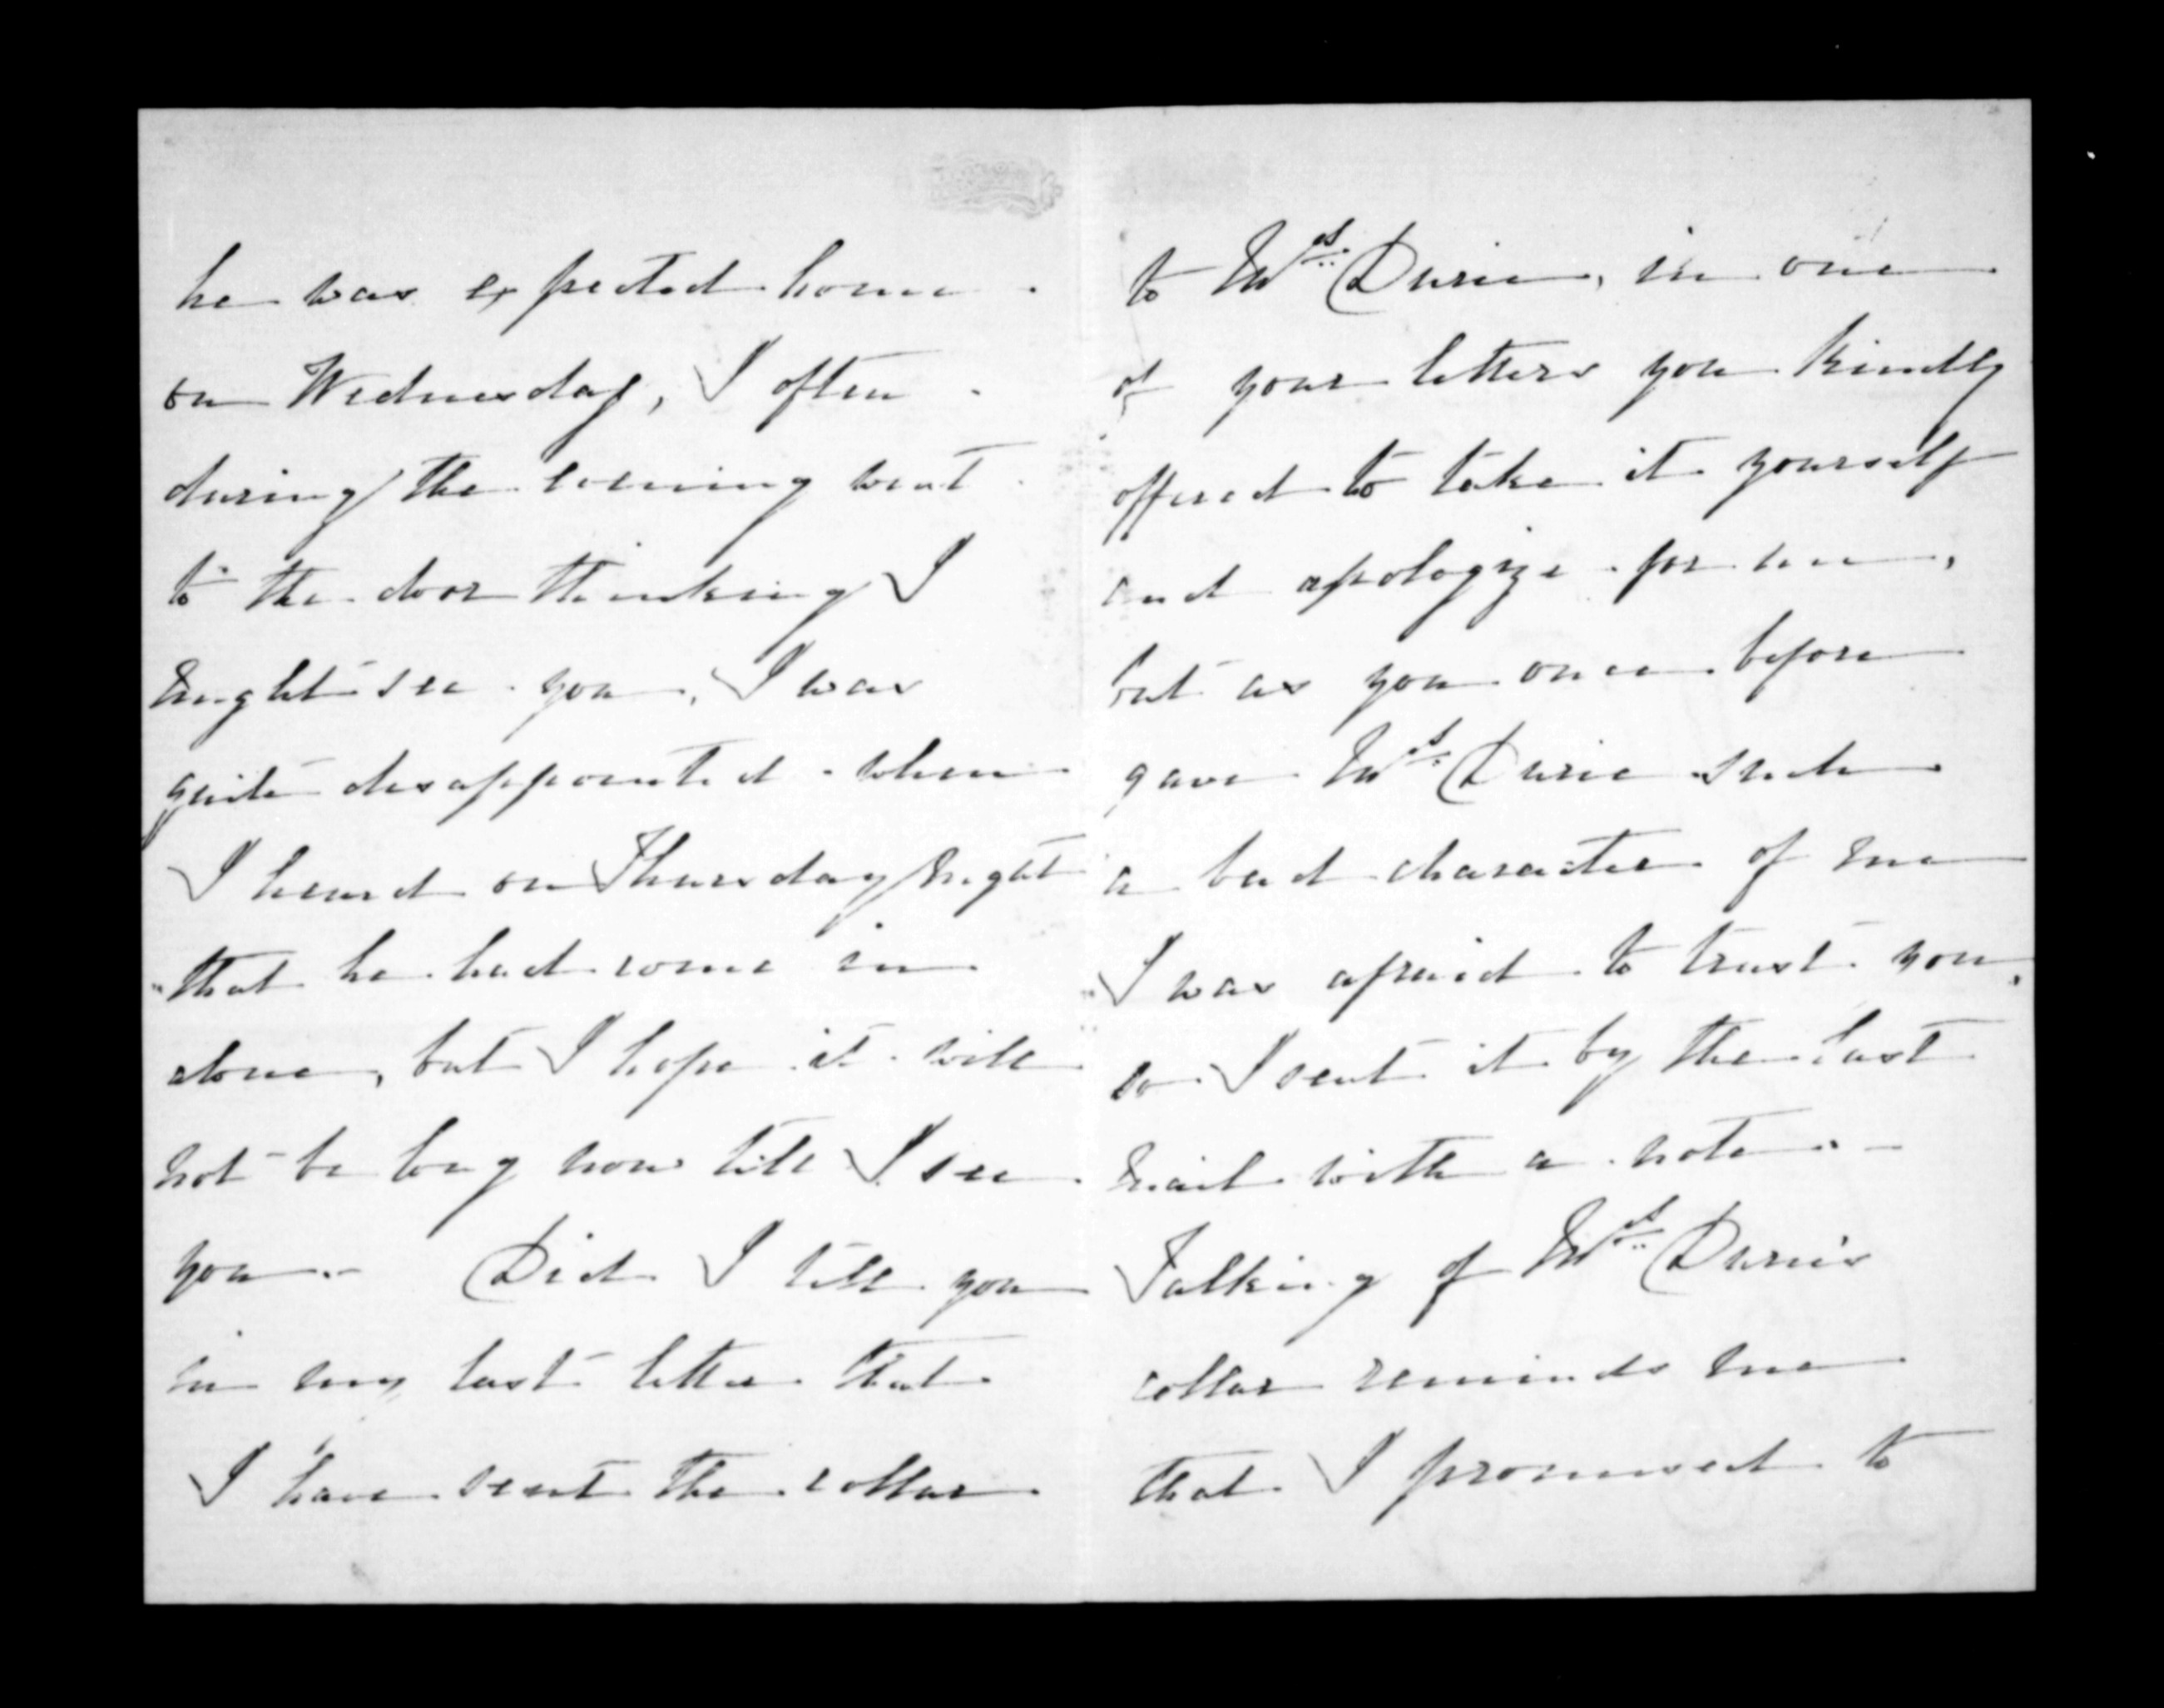 he was expected home
on Wednesday, I often
during the evening went
to the door thinking I
might see you, I was
quite disappointed when
I heard on Thursday night
that he had come in
alone, but I hope it will
not be long now till I see
you - Did I tell you
in my last letter that
I have sent the collar
to Mrs Durie, in one
of your letters you kindly
offered to take it yourself
and apologize for me,
but as you once before
gave Mrs Durie such
a bad character of me
I was afraid to trust you,
so I sent it by the last
mail with a note. -
Talking of Mrs Durie's
collar reminds me
that I promised to